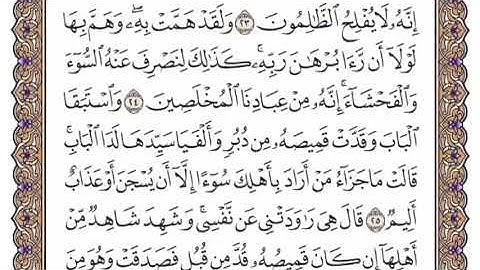 إِنَّهُۥ لَا يُفْلِحُ ٱلظَّٰلِمُونَ ٢٣ وَلَقَدْ هَمَّتْ بِهِۦۖ وَهَمَّ بِهَا
لَوْلَآ أَن رَّءَا بُرْهَٰنَ رَبِّهِۦۚ كَذَٰلِكَ لِنَصْرِفَ عَنْهُ ٱلسُّوٓءَ
وَٱلْفَحْشَآءَۚ إِنَّهُۥ مِنْ عِبَادِنَا ٱلْمُخْلَصِينَ ٢٤ وَٱسْتَبَقَا
ٱلْبَابَ وَقَدَّتْ قَمِيصَهُۥ مِن دُبُرٍ وَأَلْفَيَا سَيِّدَهَا لَدَا ٱلْبَابِۚ
قَالَتْ مَا جَزَآءُ مَنْ أَرَادَ بِأَهْلِكَ سُوٓءًا إِلَّآ أَن يُسْجَنَ أَوْ عَذَابٌ
أَلِيمٌ ٢٥ قَالَ هِىَ رَٰوَدَتْنِى عَن نَّفْسِىۚ وَشَهِدَ شَاهِدٌ مِّنْ
أَهْلِهَآ إِن كَانَ قَمِيصُهُۥ قُدَّ مِن قُبُلٍ فَصَدَقَتْ وَهُوَ مِنَ